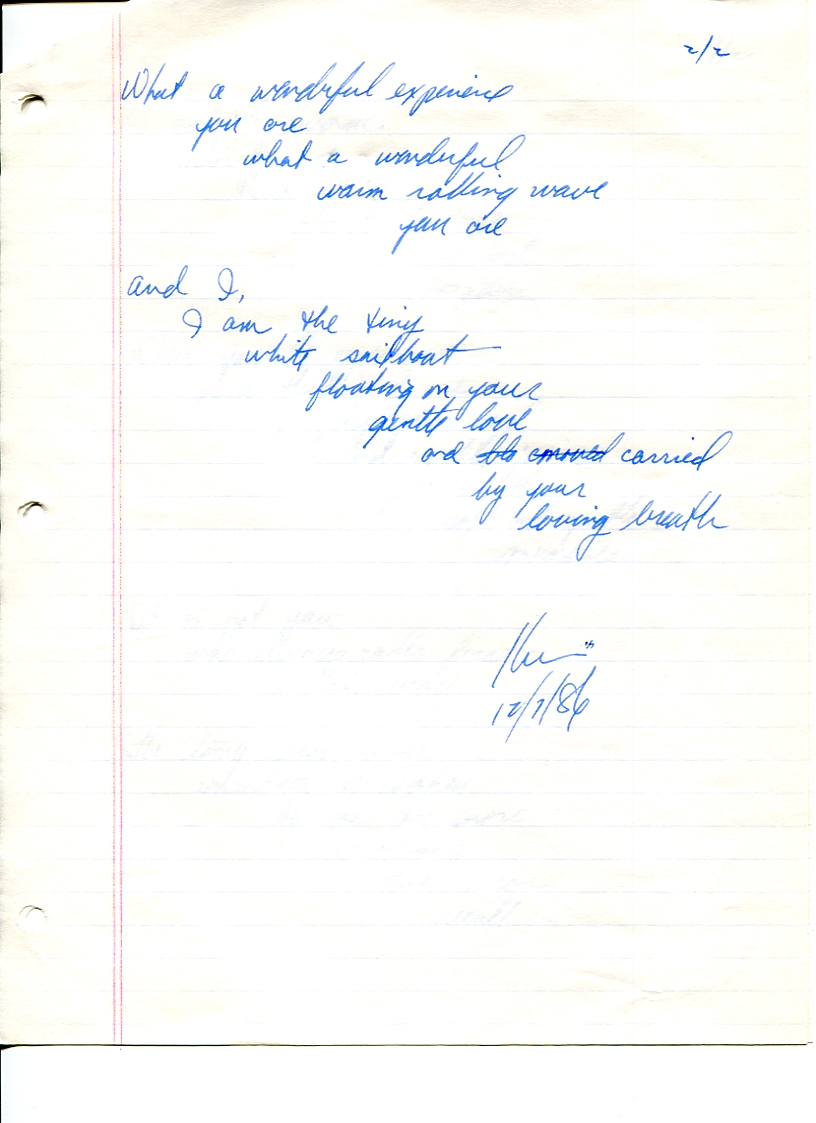 2/2
What a wonderful experience
you are
what a wonderful
warm rolling wave
you are
and I,
I am the tiny
white sailboat
floating on your
gentle love
and carried
by your
loving breath
12/7/86